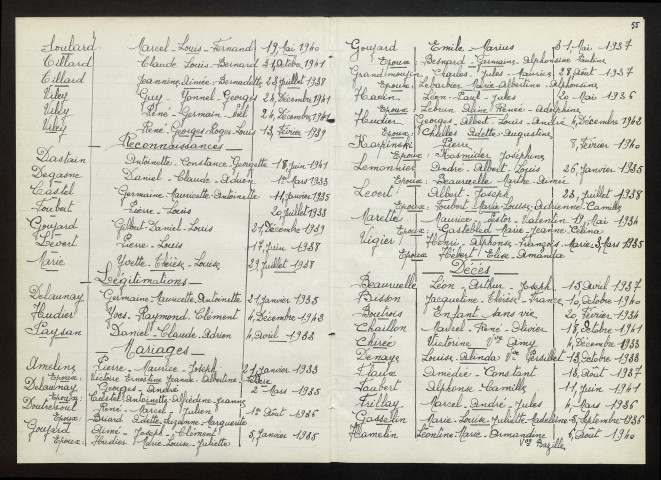 Soulard Marcel-Louis-Fernand 19 Mai 1940
Tillard Claude Louis-Bernard 31 Octobre 1941
Tillard Jeannine-Aimée-Bernadette 23 Juillet 1938
Viley Guy Yonnel-Georges 24 Décembre 1941
Viley René-Germain-Abel 24 Décembre 1941
Viley René-Georges-Roger-Louis 13 Février 1939
Reconnaissances
Dastain Antoinette-Constance-Georgette 18 Juin 1941
Degasne Daniel-Claude-Adrien 1er Mars 1933
Castel Germaine-Mauricette-Antoinette 11 Janvier 1935
Foubert Pierre-Louis 20 Juillet 1938
Goujard Gilbert-Daniel-Louis 21 Décembre 1939
Levert Pierre-Louis 17 Juin 1938
Marie Yvette-Thérèse-Louise 29 Juillet 1938
Légitimations
Delaunay Germaine-Mauricette-Antoinette 21 Janvier 1935
Haudier Yves-Raymond-Clément 4 Décembre 1943
Paysan Daniel-Claude-Adrien 4 Avril 1933
Mariages
Ameline Pierre-Maurice-Joseph 21 Janvier 1933
Epouse: Victoire Ernestine Jeanne-Albertine
Delaunay Georges-André 2 Mars 1935
Epouse: Castel Antoinette-Alfrédine Jeanne
Doutressoul René-Marcel-Julien 1er Août 1936
Epouse: Briard Odette Suzanne Marguerite
Goujard Aimé-Joseph-Clément 5 Janvier 1935
Epouse: Haudier Marie-Louise-Juliette
55
Goujard Emile Marius 31 Mai 1937
Epouse: Besnard Germaine-Alphonsine Pauline
Grandmougin Charles-Jules-Maurice 28 Août 1937
Epouse: Lebarbier Marie-Albertine-Alphonsine
Hasein Léon-Paul-Jules 20 Mai 1936
Epouse: Lebrun Aline Renée-Adolphine
Haudier Georges-Albert-Louis-André 4 Décembre 1943
Epouse: Challes Odette-Augustine
Karpinski Pierre 8 Février 1940
Epouse: Kosmider Josephine
Lemonnier André-Albert-Louis 26 Janvier 1935
Epouse: Beauruelle Marthe-Aimée
Levert Albert-Joseph 23 Juillet 1938
Epouse: Foubert Marie-Louise-Adrienne-Camille
Marette Maurice-Victor-Valentin 19 Mai 1934
Epouse: Gastebled Marie-Jeanne-Célina
Vigier Henri-Alphonse-François-Marie 3 Mars 1935
Epouse Hébert Elise-Amanda
Décès
Beauruelle Léon-Arthur-Joseph 15 Avril 1937
Buson Jacqueline-Thérèse-France 10 Octobre 1940
Boutrois Enfant sans vie 20 Février 1934
Chaillon Marcel-René-Olivier 18 Octobre 1941
Chirée Victorine Vve Amy 4 Décembre 1933
Denaye Louise-Alinda Vve Persillet 13 Octobre 1938
Flaux Amédée-Constant 18 Août 1937
Faubert Alphonse-Camille 11 Juin 1941
Frillay Marcel-André-Jules 4 Mars 1936
Gasselin Marie-Louise-Juliette-Madeleine 5 Septembre 1936
Hamelin Léontine-Marie-Armandine 6 Août 1940
Vve Bazille